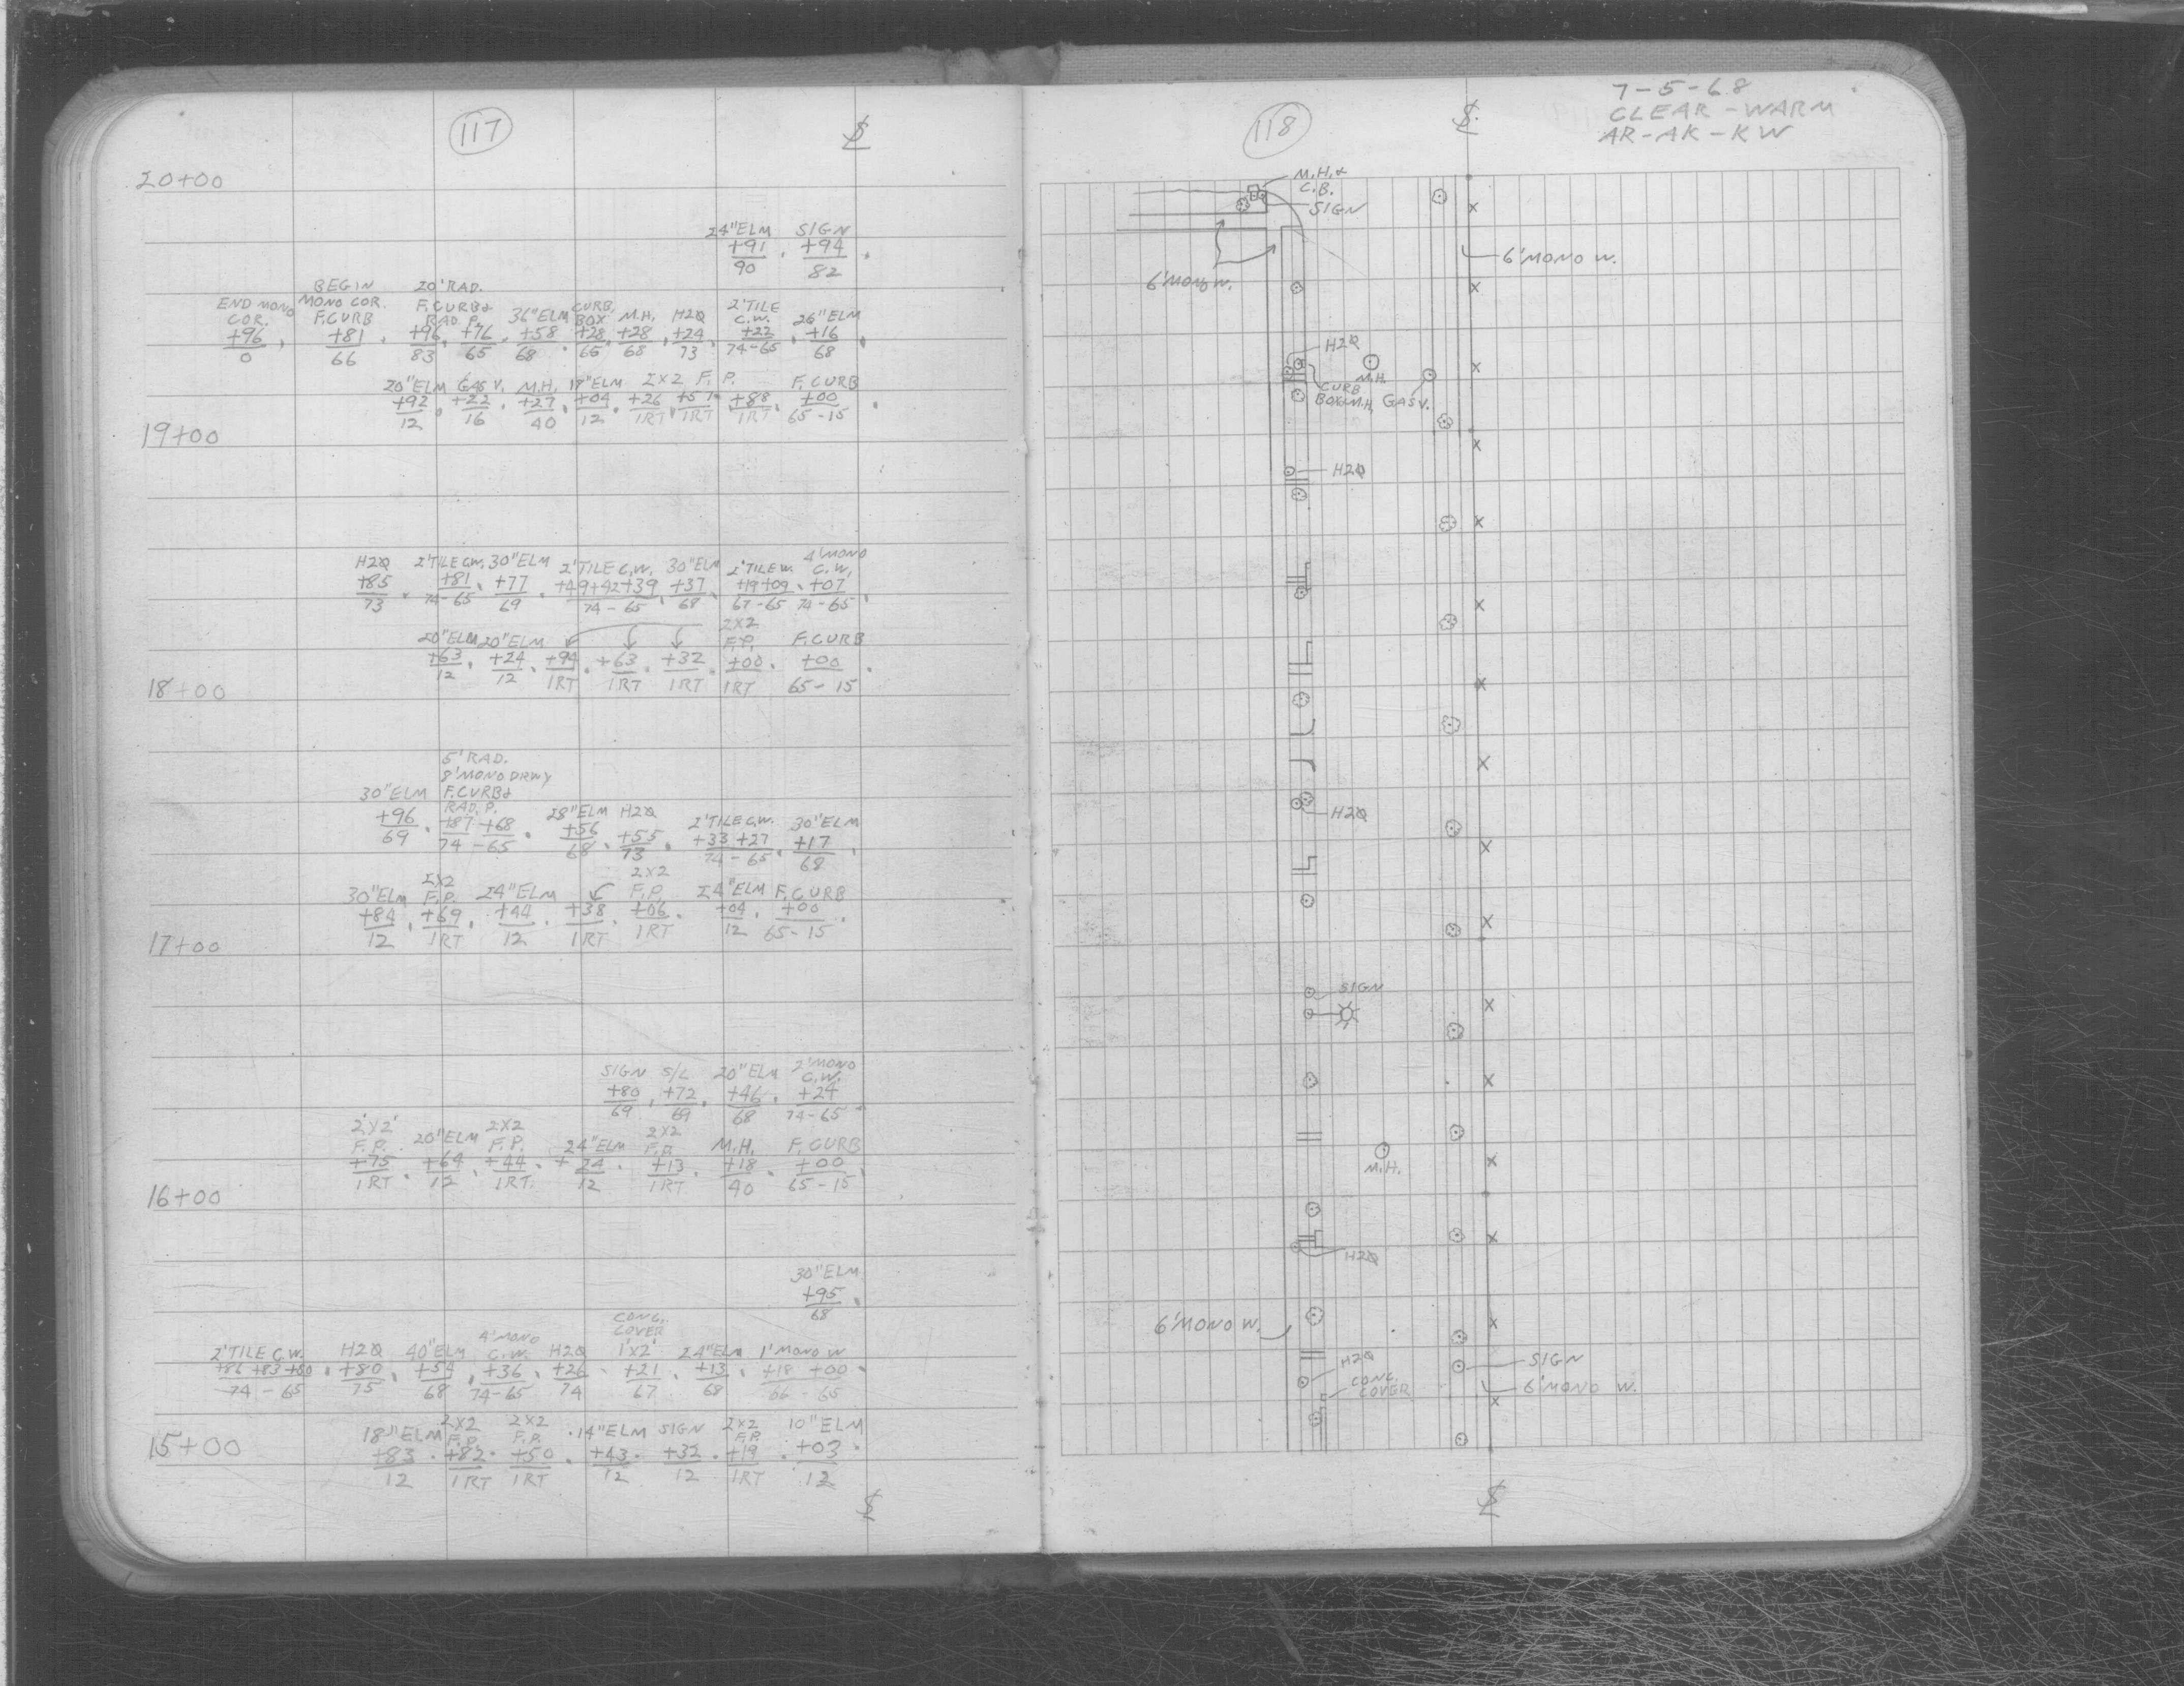 117
20+00
24"ELM SIGN
+91 +94
90 82
BEGIN 20'RAD.
END MONO MONO COR. F.CURB& 36"ELM CURB M.H. H2O 2'TILE 26"ELM
COR. F.CURB RAD P. BOX C.W.
+96 +81 +96 +76 +58 +28 +28 +24 +22 +16
0 66 83 65 68 65 68 73 74-65 68
20"ELM GAS V. M.H. 18"ELM 2X2 F.P. F.CURB
+92 +22 +27 +04 +26 +57 +88 +00
12 16 40 12 1RT 1RT 1RT 65-15
19+00
4'MONO
H2O 2'TILE C.W. 30"ELM 2'TILE C.W. 30"ELM 2'TILE W. C.W.
+85 +81 +77 +49+42+39 +37 +19+09 +07
73 74-65 69 74-65 68 67-65 74-65
2X2
20"ELM 20"ELM F.P. F.CURB
+63 +24 +94 +63 +32 +00 +00
12 12 1RT 1RT 1RT 1RT 65-15
18+00
5'RAD.
8'MONO DRWY
30"ELM F.CURB&
RAD. P. 28"ELM H2O 2'TILE C.W. 30"ELM
+96 +87 +68 +56 +55 +33 +27 +17
69 74-65 68 73 74-65 68
2X2 2X2
30"ELM F.P. 24"ELM F.P. 24"ELM F.CURB
+84 +69 +44 +38 +06 +04 +00
12 1RT 12 1RT 1RT 12 65-15
17+00
SIGN S/L 20"ELM 2'MONO
C.W.
+80 +72 +46 +24
69 69 68 74-65
2'X2' 2X2 2X2
F.P. 20"ELM F.P. 24"ELM F.P. M.H. F.CURB
+75 +64 +44 +24 +13 +18 +00
1RT 12 1RT. 12 1RT 40 65-15
16+00
30"ELM
+95
68
CONC.
4'MONO COVER
2'TILE C.W. H2O 40"ELM C.W. H2O 1'X2' 24"ELM 1'MONO W
+86 +83 +80 +80 +54 +36 +26 +21 +13 +18 +00
74-65 75 68 74-65 74 67 68 66-65
2X2 2X2 2X2
18"ELM F.P. F.P. 14"ELM SIGN F.P. 10"ELM
+83 +82 +50 +43 +32 +19 +03
12 1RT 1RT 12 12 1RT 12
15+00
118
7-5-68
CLEAR-WARM
AR-AK-KW
M.H.&
C.B.
SIGN
6'MONO W.
6'MONO W.
H2O
M.H.
CURB
BOX&M.H.
GAS V.
H2O
H2O
SIGN
M.H.
H2O
6'MONO W.
H2O
CONC.
COVER
SIGN
6'MONO W.